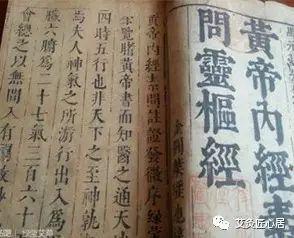 黃帝內經素
問靈樞經
黃帝內經素問註證發微序
生覽睹黃帝書而知醫之通天
四時五行也非天下之至神孰
焉夫人神氣之所游行出入為
臟六腑為二十七氣三百六十
會總之以無間入有
艾灸匠心居